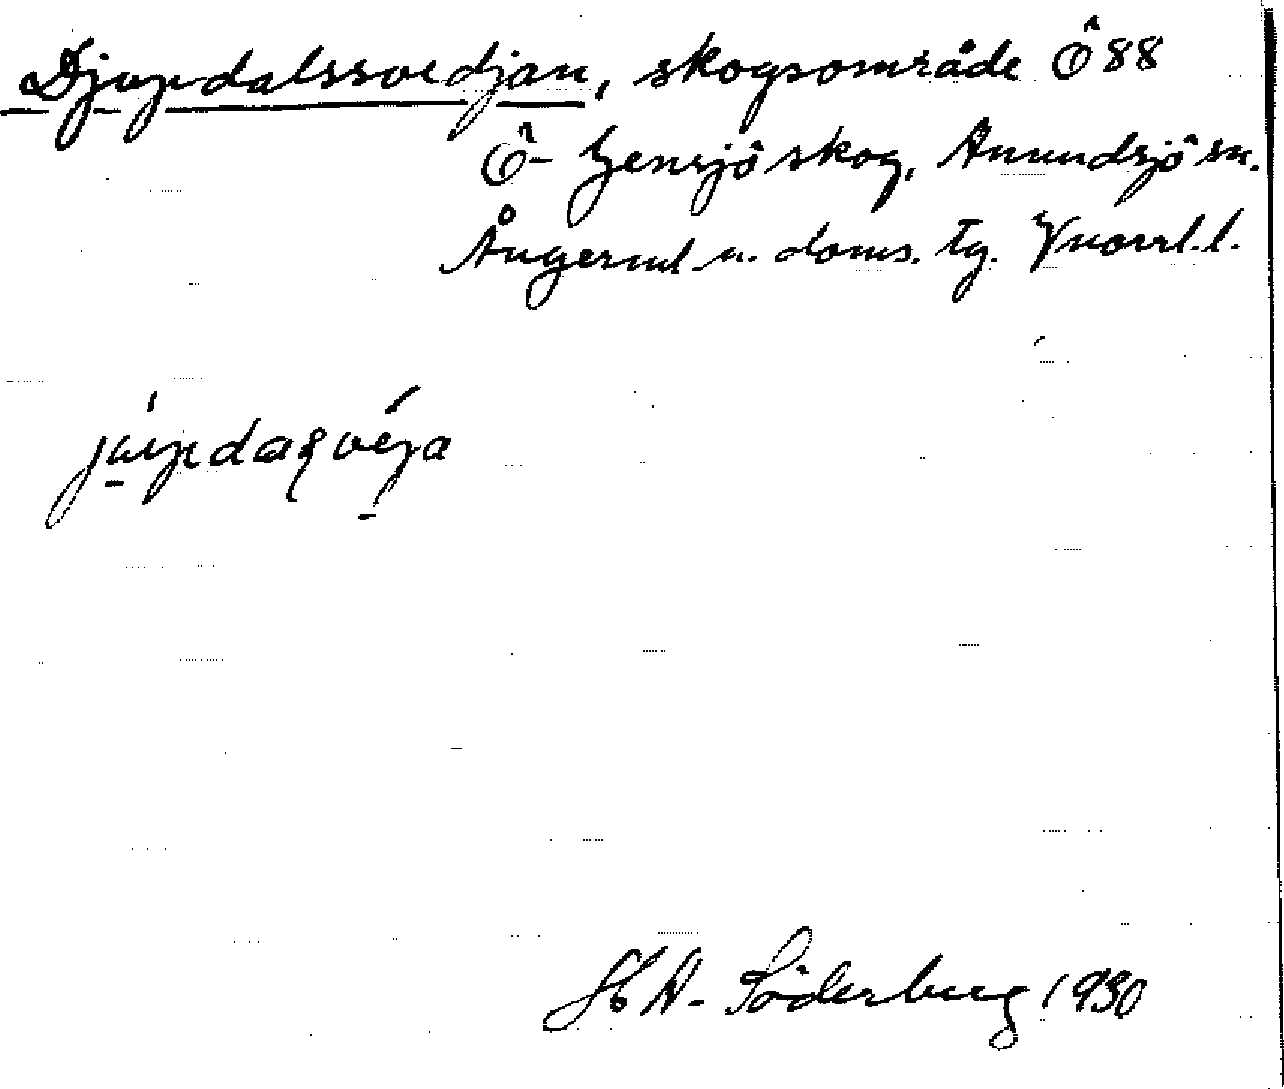 Djupdalssvedjan, skogsområde Ö 88
Ö- Gensjö skog, Anundsjö sn.
Ångerml. n. doms. tg. Vnorrl. l.
H A. Söderberg 1930